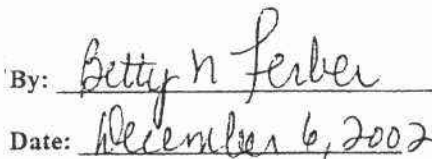 By: Betty N Ferber
Date: December 6, 2002